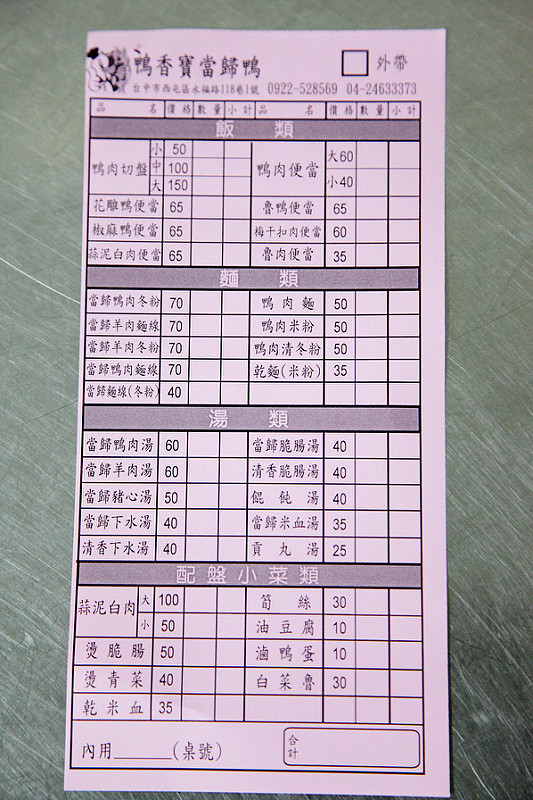 鴨香寶當歸鴨 外帶
台中市西屯區永福路118巷1號 0922-528569 04-24633373
品 名 價格 數量 小計 品 名 價格 數量 小計
飯 類
鴨肉切盤 小 50 鴨肉便當 大60
中 100
大 150 小40
花雕鴨便當 65 魯鴨便當 65
椒麻鴨便當 65 梅干扣肉便當 60
蒜泥白肉便當 65 魯肉便當 35
麵 類
當歸鴨肉冬粉 70 鴨肉麵 50
當歸羊肉麵線 70 鴨肉米粉 50
當歸羊肉冬粉 70 鴨肉清冬粉 50
當歸鴨肉麵線 70 乾麵(米粉) 35
當歸麵線(冬粉) 40
湯 類
當歸鴨肉湯 60 當歸脆腸湯 40
當歸羊肉湯 60 清香脆腸湯 40
當歸豬心湯 50 餛飩湯 40
當歸下水湯 40 當歸米血湯 35
清香下水湯 40 貢丸湯 25
配盤小菜類
蒜泥白肉 大 100 筍絲 30
小 50 油豆腐 10
燙脆腸 50 滷鴨蛋 10
燙青菜 40 白菜魯 30
乾米血 35
內用______(桌號) 合計